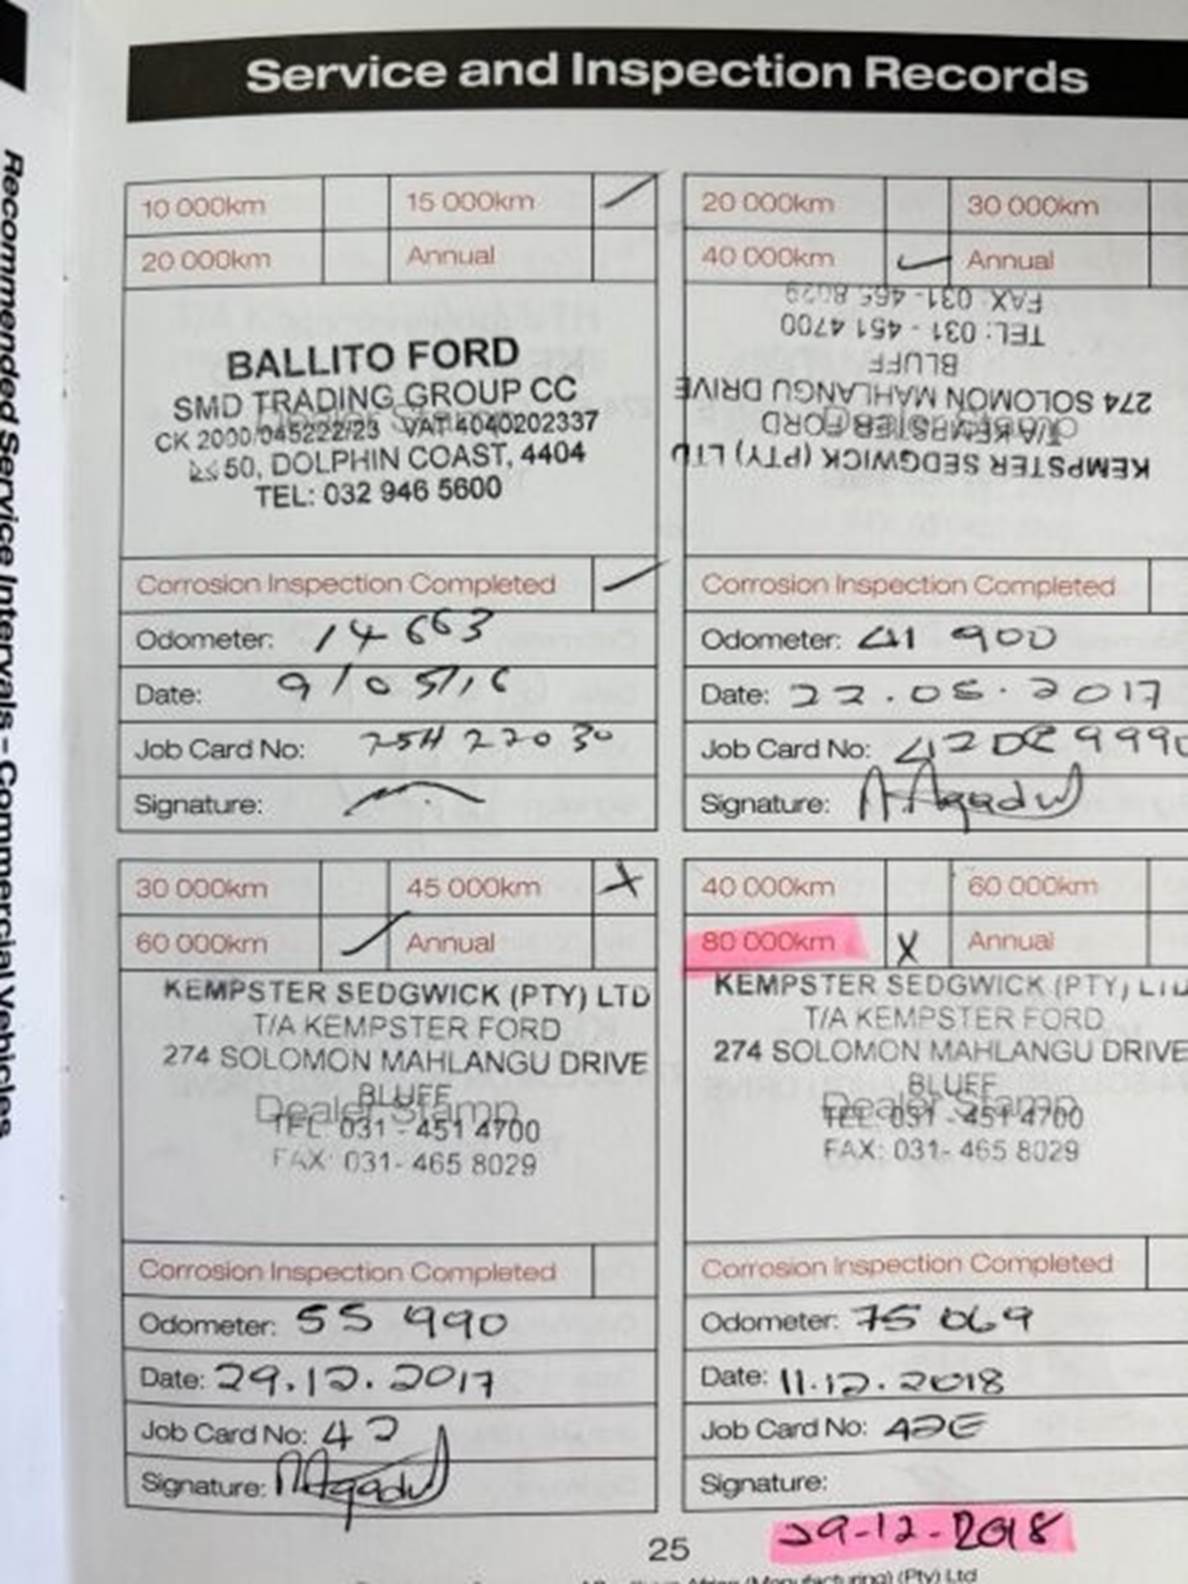 Recommended Service Intervals - Commercial Vehicles
Service and Inspection Records
10 000km 15 000km
20 000km Annual
BALLITO FORD
SMD TRADING GROUP CC
CK 2000/045222/23 VAT 4040202337
50, DOLPHIN COAST, 4404
TEL: 032 946 5600
Corrosion Inspection Completed
Odometer: 14 663
Date: 9/05/16
Job Card No:
Signature:
20 000km 30 000km
40 000km Annual
KEMPSTER SEDGWICK (PTY) LTD
T/A KEMPSTER FORD
Dealer Stamp
274 SOLOMON MAHLANGU DRIVE
BLUFF
TEL: 031 - 451 4700
FAX: 031- 465 8029
Corrosion Inspection Completed
Odometer: 41 900
Date: 22.05.2017
Job Card No:
Signature:
30 000km 45 000km X
60 000km Annual
KEMPSTER SEDGWICK (PTY) LTD
T/A KEMPSTER FORD
274 SOLOMON MAHLANGU DRIVE
BLUFF
Dealer Stamp
TEL: 031 - 451 4700
FAX: 031- 465 8029
Corrosion Inspection Completed
Odometer: 55 990
Date: 29.12.2017
Job Card No: 42
Signature:
40 000km 60 000km
80 000km X Annual
KEMPSTER SEDGWICK (PTY) LTD
T/A KEMPSTER FORD
274 SOLOMON MAHLANGU DRIVE
BLUFF
Dealer Stamp
TEL: 031 - 451 4700
FAX: 031- 465 8029
Corrosion Inspection Completed
Odometer: 75 069
Date: 11.12.2018
Job Card No: 42E
Signature:
29-12-2018
25
(Manufacturing) (Pty) Ltd